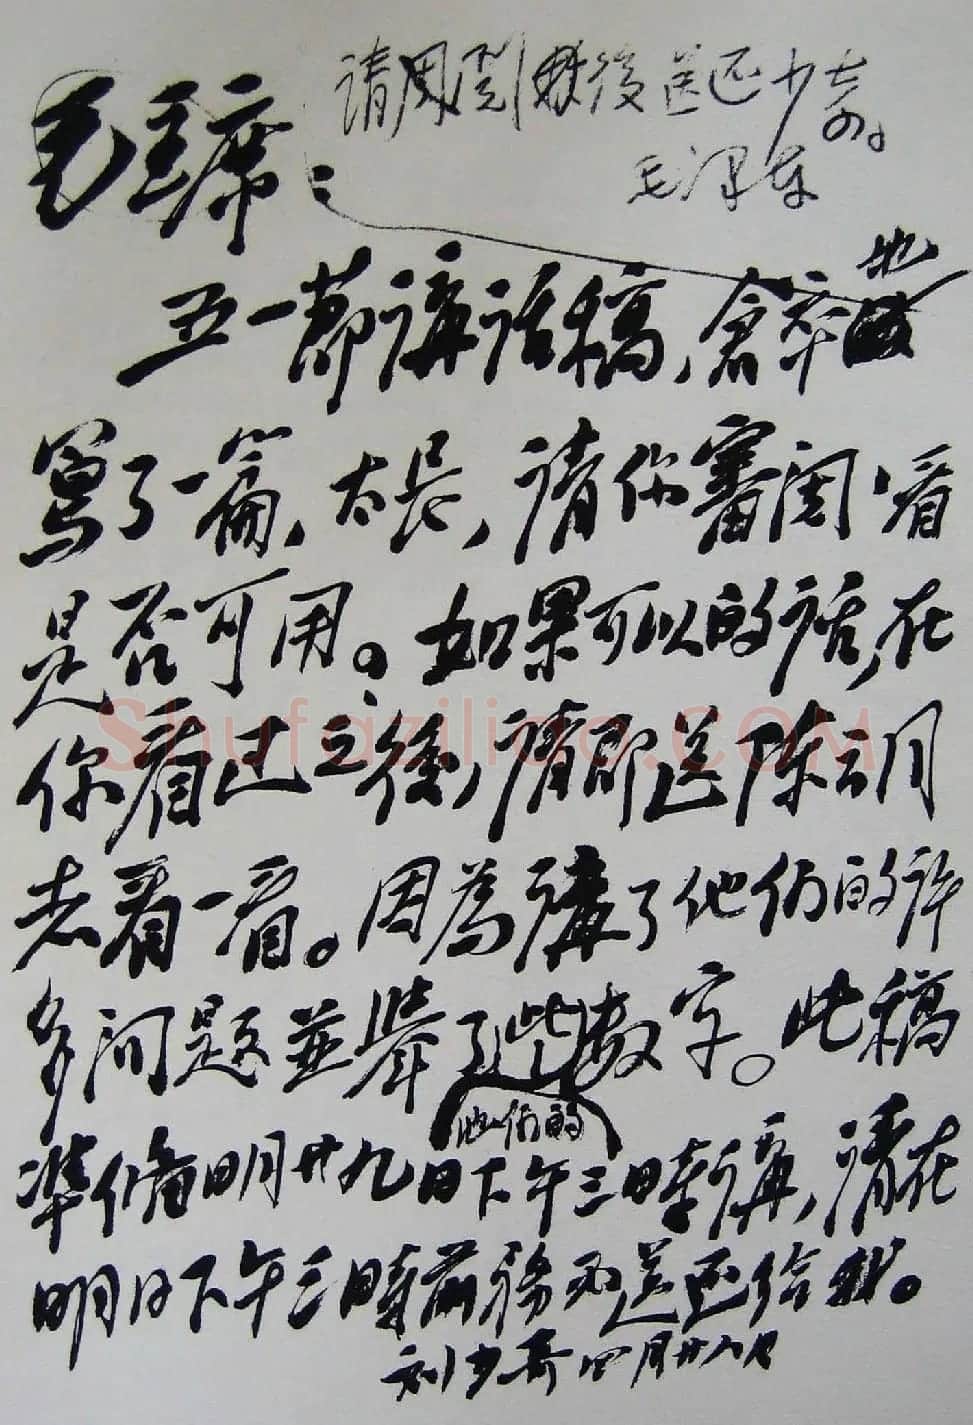 请周閱畢後送还少奇。
毛泽东
毛主席：
五一節講话稿，倉卒地
寫了一篇，太長，请你審閱，看
是否可用。如果可以的话，在
你看过之後，请即送陈云同
Shufaziliao.COM
志看一看。因為講了他们的许
多问题並舉了些數字。此稿
他们的
準備明廿九日下午三時講，请在
明日下午三時前務必送还给我。
刘少奇 四月廿八日